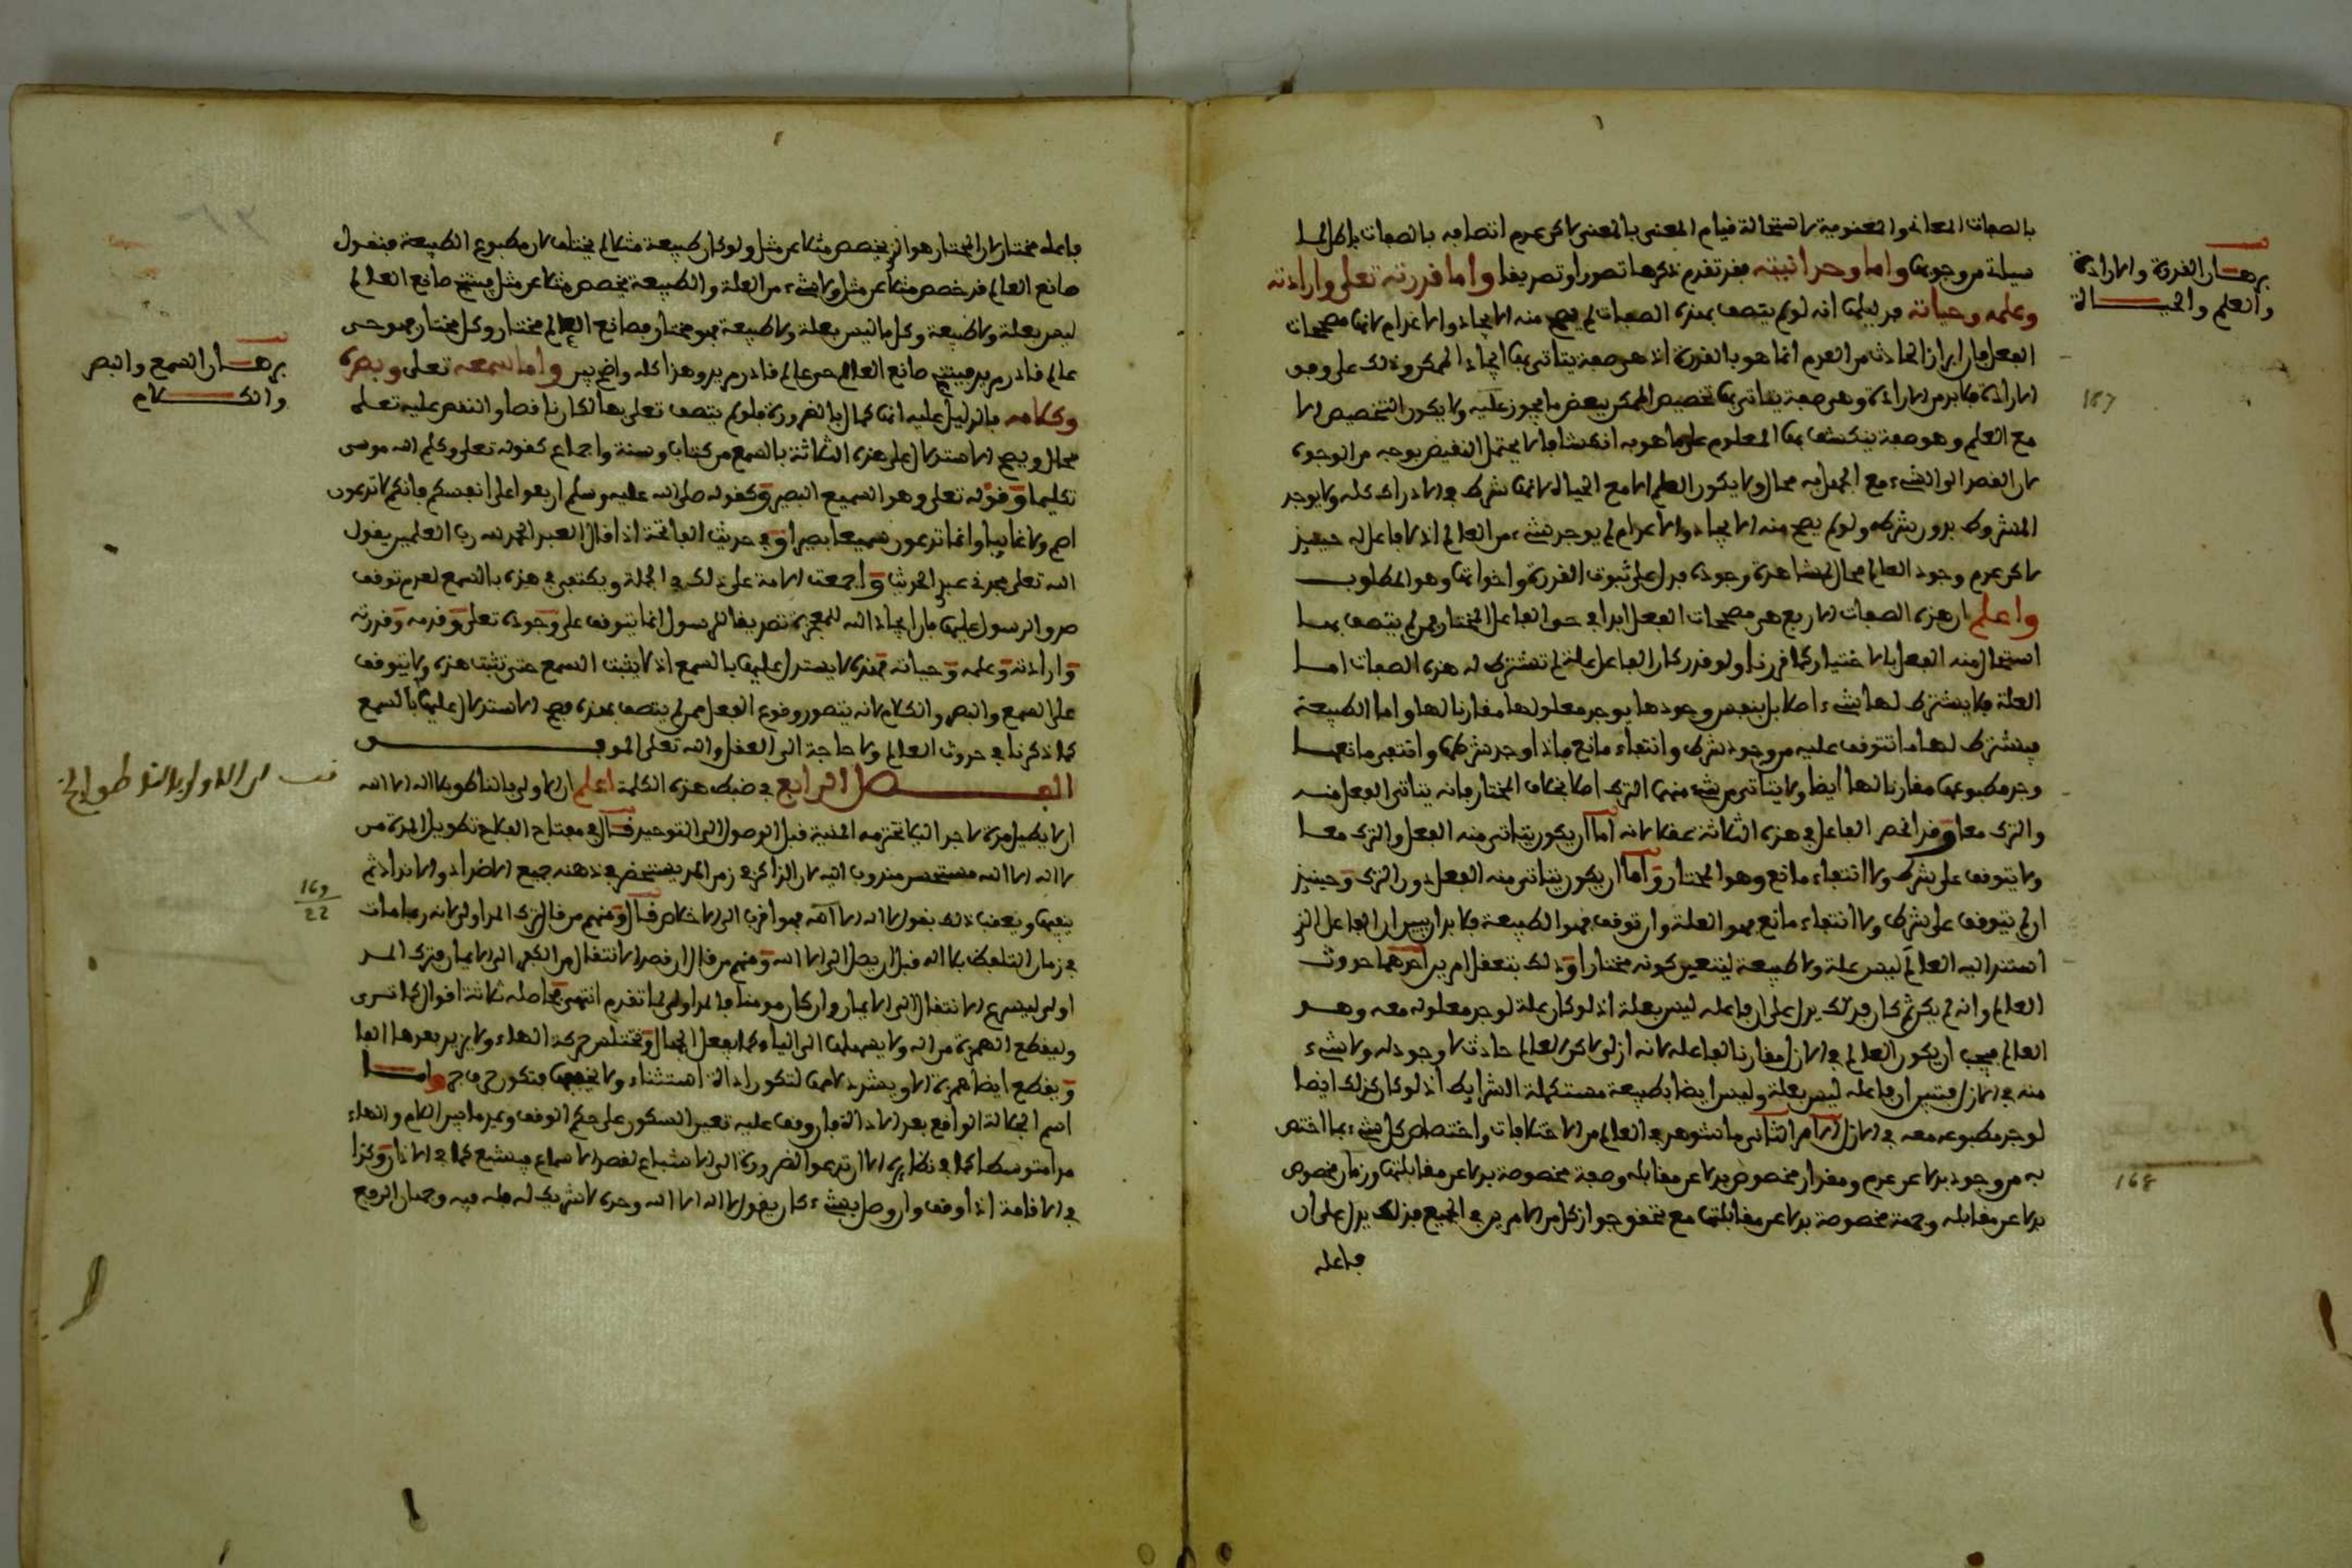 بالصفات المعاني والمعنوية لاستحالة قيام المعنى بالمعنى لاكن عدم اتصافه بالصفات باطل لما
سيلة من وجوبها واما وحدانيته فقد تقدم ذكرها تصورا وتصديقا واما قدرته تعلى وارادته
وعلمه وحياته فدليلها انه لو لم يتصف بهذه الصفات لم يصح منه الايجاد والاعدام لانها مصححات
الفعل فان ابراز الحادث من العدم انما هو بالقدرة اذ هي صفة يتاتى بها ايجاد الممكن وذلك على وفق
الارادة فلابد من الارادة وهي صفة يتاتى بها تخصيص الممكن ببعض ما يجوز عليه ولا يكون التخصيص الا
مع العلم وهو صفة ينكشف بها المعلوم على ما هو به انكشافا لا يحتمل النقيض بوجه من الوجوه
لان القصد الى الشيء مع الجهل به محال ولا يكون العلم الا مع الحياة لانها شرط في الادراك كله ولا يوجد
المشروط بدون شرطه ولو لم يصح منه الايجاد والاعدام لم يوجد شيء من العالم اذ لا فاعل له حينئذ
لاكن عدم وجود العالم محال لمشاهدة وجوده فدل على ثبوت القدرة واخواتها وهو المطلوب
واعلم ان هذه الصفات الاربع هي مصححات الفعل ابدا في حق الفاعل المختار فمن لم يتصف بها
استحال منه الفعل بالاختيار كما قررنا ولو قدر كان الفاعل علة لم تشترط له هذه الصفات اما
العلة فلا يشترط لها شيء اصلا بل بنفس وجودها يوجد معلولها مقارنا لها واما الطبيعة
فيشترط لها ما تتوقف عليه من وجود شرط وانتفاء مانع فاذا وجد شرطها وانتفى مانعها
وجد مطبوعها مقارنا لها ايضا ولا يتاتى من شيء منهما الترك اصلا بخلاف المختار فانه يتاتى الفعل منه
والترك معا وقد انحصر الفاعل في هذه الثلاثة عقلا لانه اما ان يكون يتاتى منه الفعل والترك معا
ولا يتوقف على شرط ولا انتفاء مانع وهو المختار واما ان يكون يتاتى منه الفعل دون الترك وحينئذ
ان لم يتوقف على شرط ولا انتفاء مانع فهو العلة وان توقف فهو الطبيعة فلابد ان يبين ان الفاعل الذي
استند اليه العالم ليس علة ولا طبيعة ليتعين كونه مختارا وذلك بتعقل امرين احدهما حدوث
العالم وانه لم يكن ثم كان فذلك يدل على ان فاعله ليس بعلة اذ لو كان علة لوجد معلوله معه وهو
العالم فيجب ان يكون العالم في الازل مقارنا لفاعله لانه ازلي لاكن العالم حادث لا وجود له ولا شيء
منه في الازل فتبين ان فاعله ليس بعلة وليس ايضا بطبيعة مستكملة الشرايط اذ لو كان كذلك ايضا
لوجد مطبوعه معه في الازل الامر الثاني ما شوهد في العالم من الاختلافات واختصاص كل شيء بما اختص
به من وجود بدلا عن عدم ومقدار مخصوص بدلا عن مقابله وصفة مخصوصة بدلا عن مقابلتها وزمان مخصوص
بدلا عن مقابله وجهة مخصوصة بدلا عن مقابلتها مع تحقق جواز كل من الامرين في الجميع فذلك يدل على ان
فاعله
برهان القدرة والارادة
والعلم والحياة
167
168
فاعله مختار لان المختار هو الذي يخصص مثلا عن مثل ولو كان طبيعة مثلا لم يختلف لان مطبوع الطبيعة فنقول
صانع العالم قد خصص مثلا عن مثل ولا شيء من العلة والطبيعة يخصص مثلا عن مثل فينتج صانع العالم
ليس بعلة ولا طبيعة وكل ما ليس بعلة ولا طبيعة فهو مختار فصانع العالم مختار وكل مختار فهو حي
عالم قادر مريد فينتج صانع العالم حي عالم قادر مريد وهذا كله واضح بين واما سمعه تعلى وبصره
وكلامه فالدليل عليه انها كمال بالضرورة فلو لم يتصف تعلى بها لكان ناقصا والنقص عليه تعلى
محال ويصح الاستدلال على هذه الثلاثة بالسمع من كتاب وسنة واجماع كقوله تعلى وكلم الله موسى
تكليما وقوله تعلى وهو السميع البصير وكقوله صلى الله عليه وسلم اربعوا على انفسكم فانكم لا تدعون
اصم ولا غايبا وانما تدعون سميعا بصيرا وفي حديث الفاتحة اذا قال العبد الحمد لله رب العلمين يقول
الله تعلى حمدني عبدي الحديث واجمعت الامة على ذلك في الجملة ويكتفى في هذه بالسمع لعدم توقف
صدق الرسول عليها فان ايجاد الله للمعجزة تصديقا للرسول انما يتوقف على وجوده تعلى وقدمه وقدرته
وارادته وعلمه وحياته فهذه لا يستدل عليها بالسمع اذ لا يثبت السمع حتى تثبت هذه ولا يتوقف
على السمع والبصر والكلام لانه يتصور وقوع الفعل ممن لم يتصف بهذه فصح الاستدلال عليها بالسمع
كما ذكرنا في حدوث العالم ولا حاجة الى العقل والله تعلى الموفق
الفصل الرابع في ضبط هذه الكلمة اعلم ان الاولى بالناطق بلا اله الا الله
ان لا يطيل مدة لا جدا ليلا تخترمه المنية قبل الوصول الى التوحيد قال في مفتاح الفلاح تطويل المدة من
لا اله الا الله مستحسن مندوب اليه لان الذاكر في زمن المد يستحضر في ذهنه جميع الاضداد والانداد ثم
ينفيها ويعقب ذلك بقول لا اله الا الله فهو اقرب الى الاخلاص قال ومنهم من قال ترك المد اولى لانه ربما مات
في زمان التلفظ بلا اله قبل ان يصل الى الا الله ومنهم من قال ان قصد الانتقال من الكفر الى الايمان فترك المد
اولى ليسرع الانتقال الى الايمان وان كان مومنا فالمد اولى لما تقدم انتهى فحاصله ثلاثة اقوال كما ترى
وليقطع الهمزة من اله ولا يسهلها الى الياء كما يفعل الجهال وتختلس حركة الهاء ولا يزيد بعدها الفا
ويقطع ايضا همزة الا ويشدد لامها لتكون اداة استثناء ولا يخففها فتكون حرف جر واما
اسم الجلالة الواقع بعد الاداة فان وقف عليه تعين السكون على حكم الوقف ويمد ما بين اللام والهاء
مدا متوسطا كما في نظايره الا ان تدعو الضرورة الى الاشباع لقصد الاسماع فيشبع كما في الاذان وكذا
في الاقامة اذا وقف وان وصل بشيء كان يقول لا اله الا الله وحده لا شريك له فله فيه وجهان الرفع
برهان السمع والبصر
والكلام
169
22